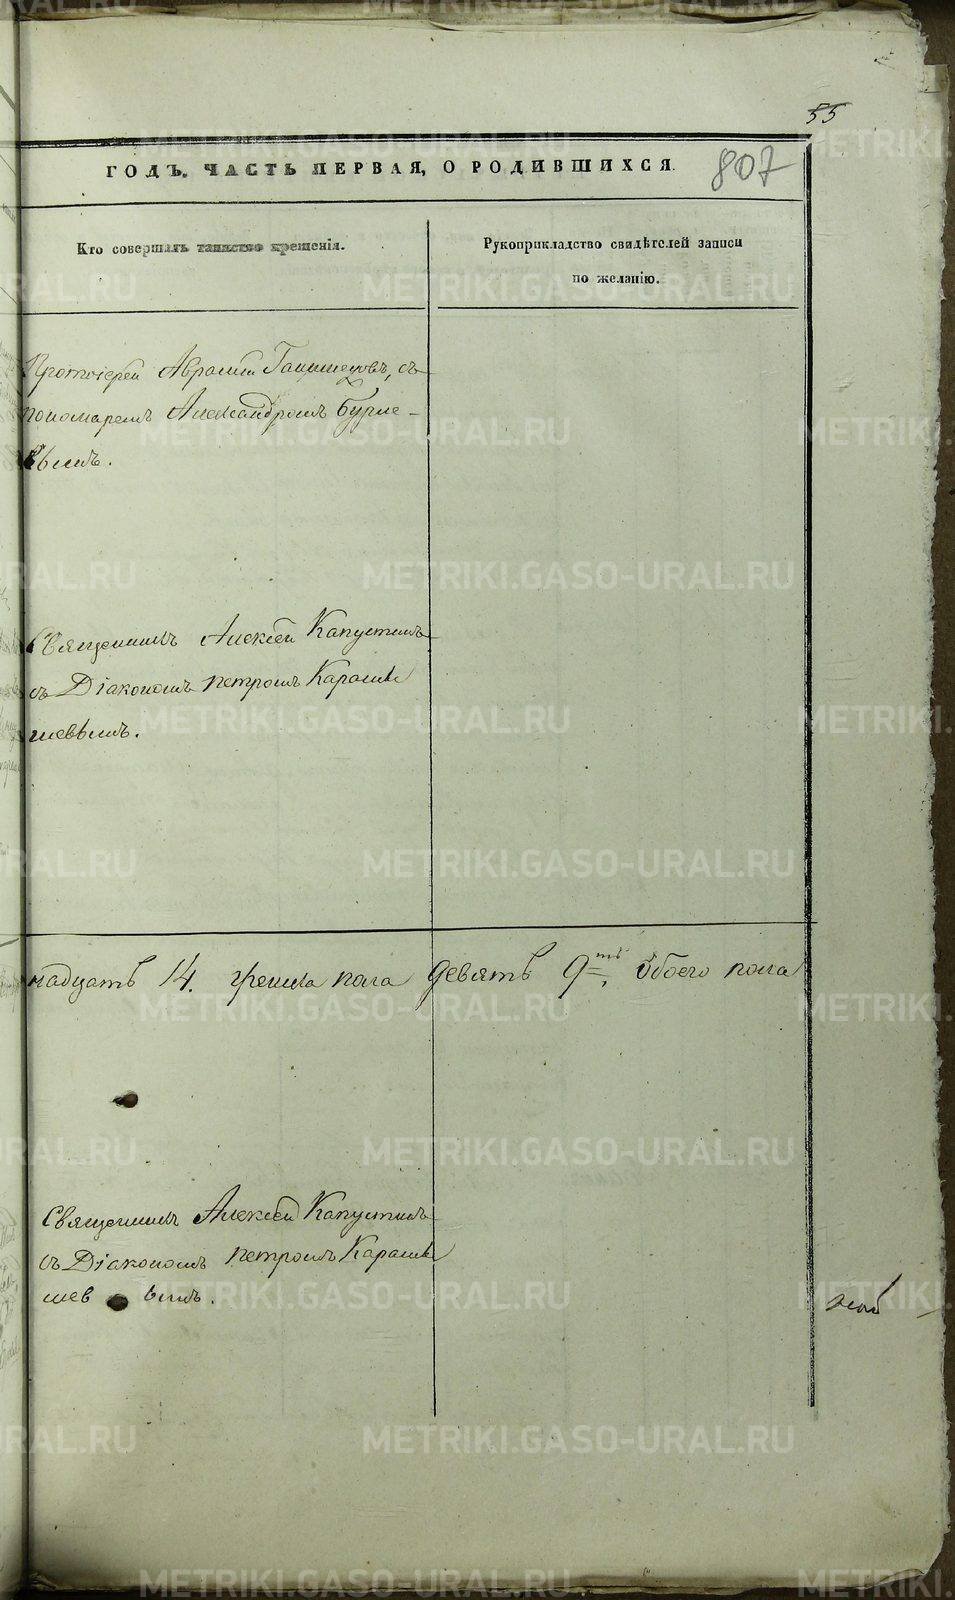 55
ГОДЪ. ЧАСТЬ ПЕРВАЯ, О РОДИВШИХСЯ.
807
Кто совершалъ таинство крещенія.
Рукоприкладство свидѣтелей записи
по желанію.
Протоіерей Аврамій съ
пономаремъ Александромъ Бурме-
вымъ.
Священникъ Алексѣй Капустинъ
съ Діакономъ Петромъ Карамы
шевымъ.
надцать 14. женска пола девять 9ть, обоего пола
Священникъ Алексѣй Капустинъ
съ Діакономъ Петромъ Карамы
шев ымъ.
METRIKI.GASO-URAL.RU